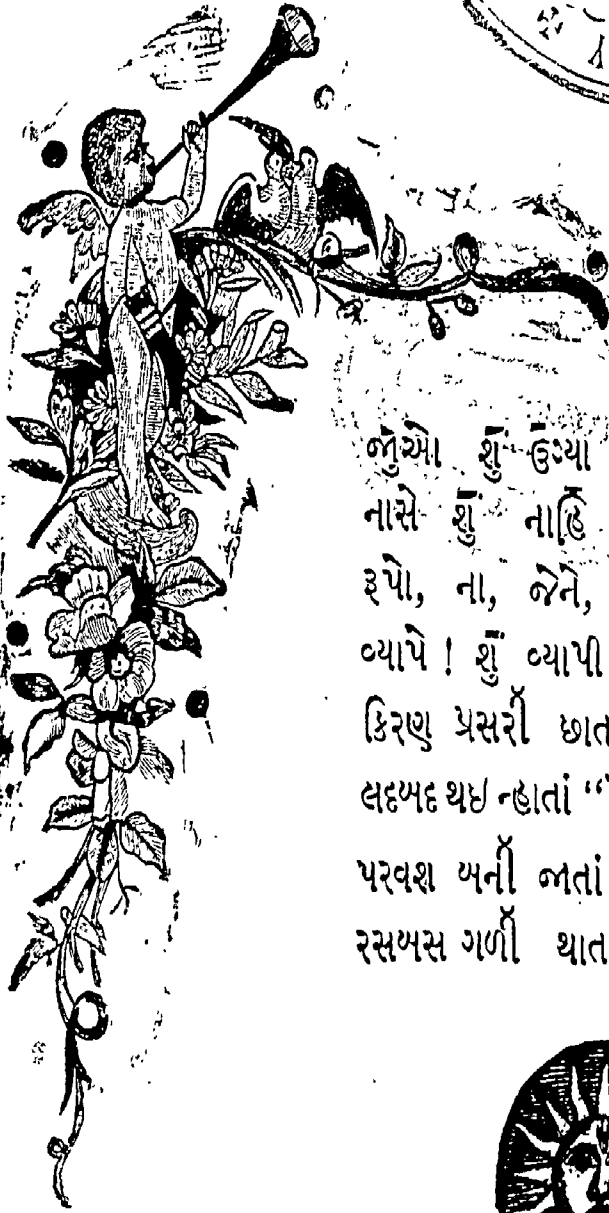 જુઓ શું ઉગ્યા
નાસે શું નાહિં
રૂપો, ના, જેને,
વ્યાપે ! શું વ્યાપી
કિરણ પ્રસરીઁ છાત
લદબદ થઇ ન્હાતાં “
પરવશ બનીઁ જાતાં
રસબસ ગળીઁ થાત